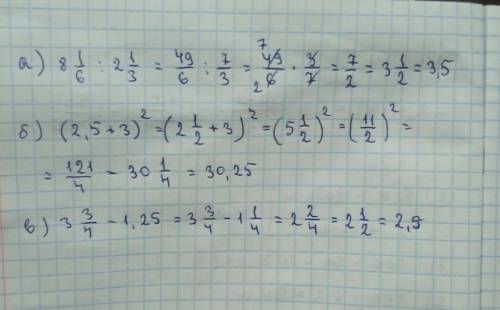 а) 8 1/6 : 2 1/3 = 49/6 : 7/3 = 7 49/2 6 · 3/7 = 7/2 = 3 1/2 = 3,5
б) (2,5+3)² = (2 1/2 + 3)² = (5 1/2)² = (11/2)² =
= 121/4 - 30 1/4 = 30,25
в) 3 3/4 - 1,25 = 3 3/4 - 1 1/4 = 2 2/4 = 2 1/2 = 2,5